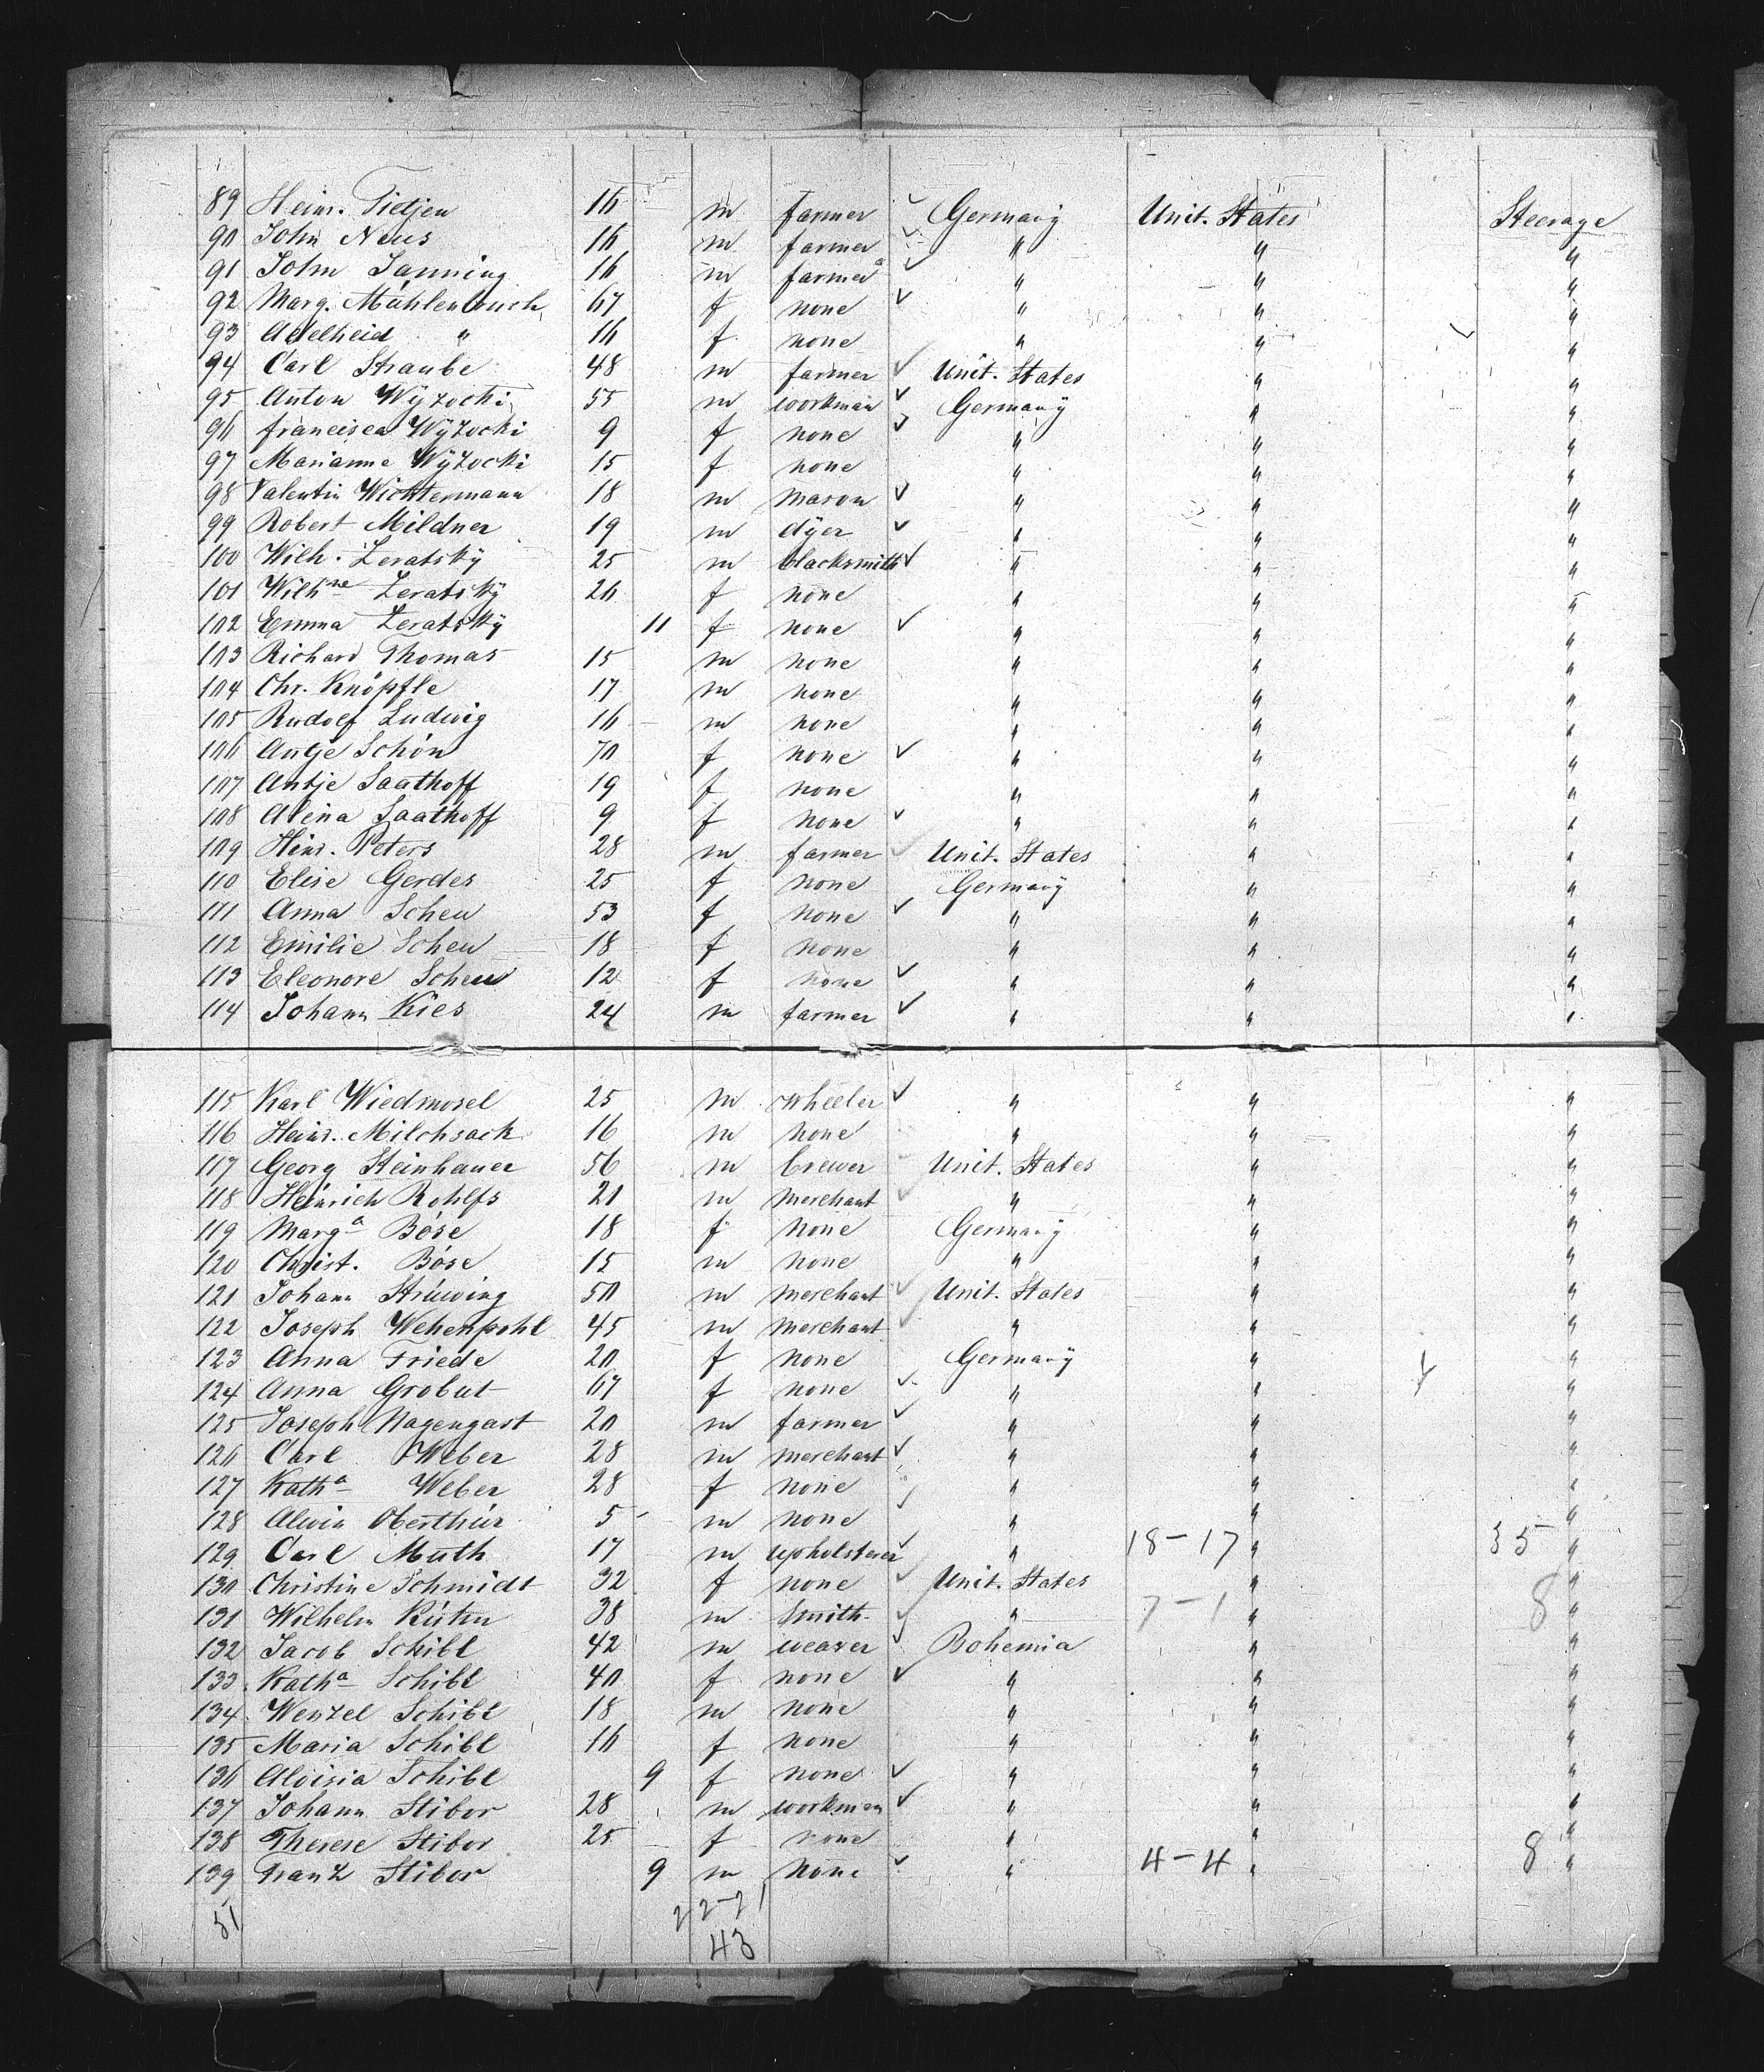 89 Heinr. Tietjen 16 m farmer ✓ Germany Unit. States Steerage
90 John Neus 16 m farmer ✓ " " "
91 John Janning 16 m farmer ✓ " " "
92 Marg. Mühlenbruch 67 f none ✓ " " "
93 Adelheid " 16 f none " " "
94 Carl Straube 48 m farmer ✓ Unit. States " "
95 Anton Wÿzocki 55 m workman ✓ Germany " "
96 francisca Wÿzocki 9 f none ✓ " " "
97 Marianna Wÿzocki 15 f none " " "
98 Valentin Wichtermann 18 m mason ✓ " " "
99 Robert Mildner 19 m dÿer ✓ " " "
100 Wilh. Zeratskÿ 25 m blacksmith ✓ " " "
101 Wilhne Zeratskÿ 26 f none " " "
102 Emma Zeratskÿ 11 f none ✓ " " "
103 Richard Thomas 15 m none " " "
104 Chr. Knöpfle 17 m none " " "
105 Rudolf Ludwig 16 m none " " "
106 Antje Schön 70 f none ✓ " " "
107 Antje Saathoff 19 f none " " "
108 Alena Saathoff 9 f none ✓ " " "
109 Hinr. Peters 28 m farmer ✓ Unit. States " "
110 Elise Gerdes 25 f none Germany " "
111 Anna Scheu 53 f none ✓ " " "
112 Emilie Scheu 18 f none " " "
113 Eleonore Scheu 12 f none ✓ " " "
114 Johann Kies 24 m farmer ✓ " " "
115 Karl Wiedmosel 25 m wheeler ✓ " " "
116 Heinr. Milchsack 16 m none " " "
117 Georg Steinhauer 56 m brewer Unit. States " "
118 Heinrich Rohlfs 21 m merchant ✓ " " "
119 Marga Böse 18 f none Germany " "
120 Christ. Böse 15 m none " " "
121 Johann Strüwing 50 m merchant ✓ Unit. States " "
122 Joseph Wehenpohl 45 m merchant ✓ " " "
123 Anna Friede 20 f none Germany " "
124 Anna Grobut 67 f none ✓ " " "
125 Joseph Nagengast 20 m farmer ✓ " " "
126 Carl Weber 28 m merchant ✓ " " "
127 Katha Weber 28 f none " " "
128 Alwin Oberthür 5 m none ✓ " " "
129 Carl Muth 17 m upholsterer ✓ " 18-17 " 35 "
130 Christine Schmidt 32 f none ✓ Unit. States " "
131 Wilhelm 38 m Smith ✓ " 7-1 " 8 "
132 Jacob Schibl 42 m weaver ✓ Bohemia " "
133 Katha Schibl 40 f none ✓ " " "
134 Wenzel Schibl 18 m none " " "
135 Maria Schibl 16 f none " " "
136 Aloisia Schibl 9 f none ✓ " " "
137 Johann Stibor 28 m workman ✓ " " "
138 Therese Stibor 25 f none " " "
139 Franz Stibor 9 m none ✓ " 4-4 " 8 "
51 22-21
43